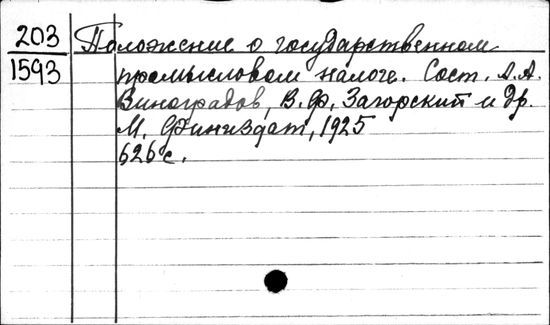 203
1593
Положение о государственном
промысловом налоге. Сост. А.А.
Виноградов, В.Ф. Загорский и др.
М. Финиздат, 1925
626 с.